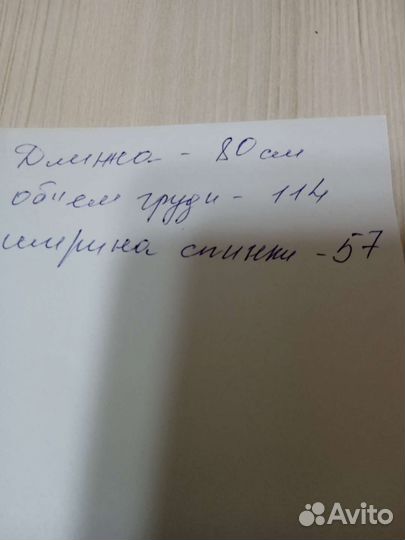 Длина - 80 см
объем груди - 114
ширина спинки - 57
Avito